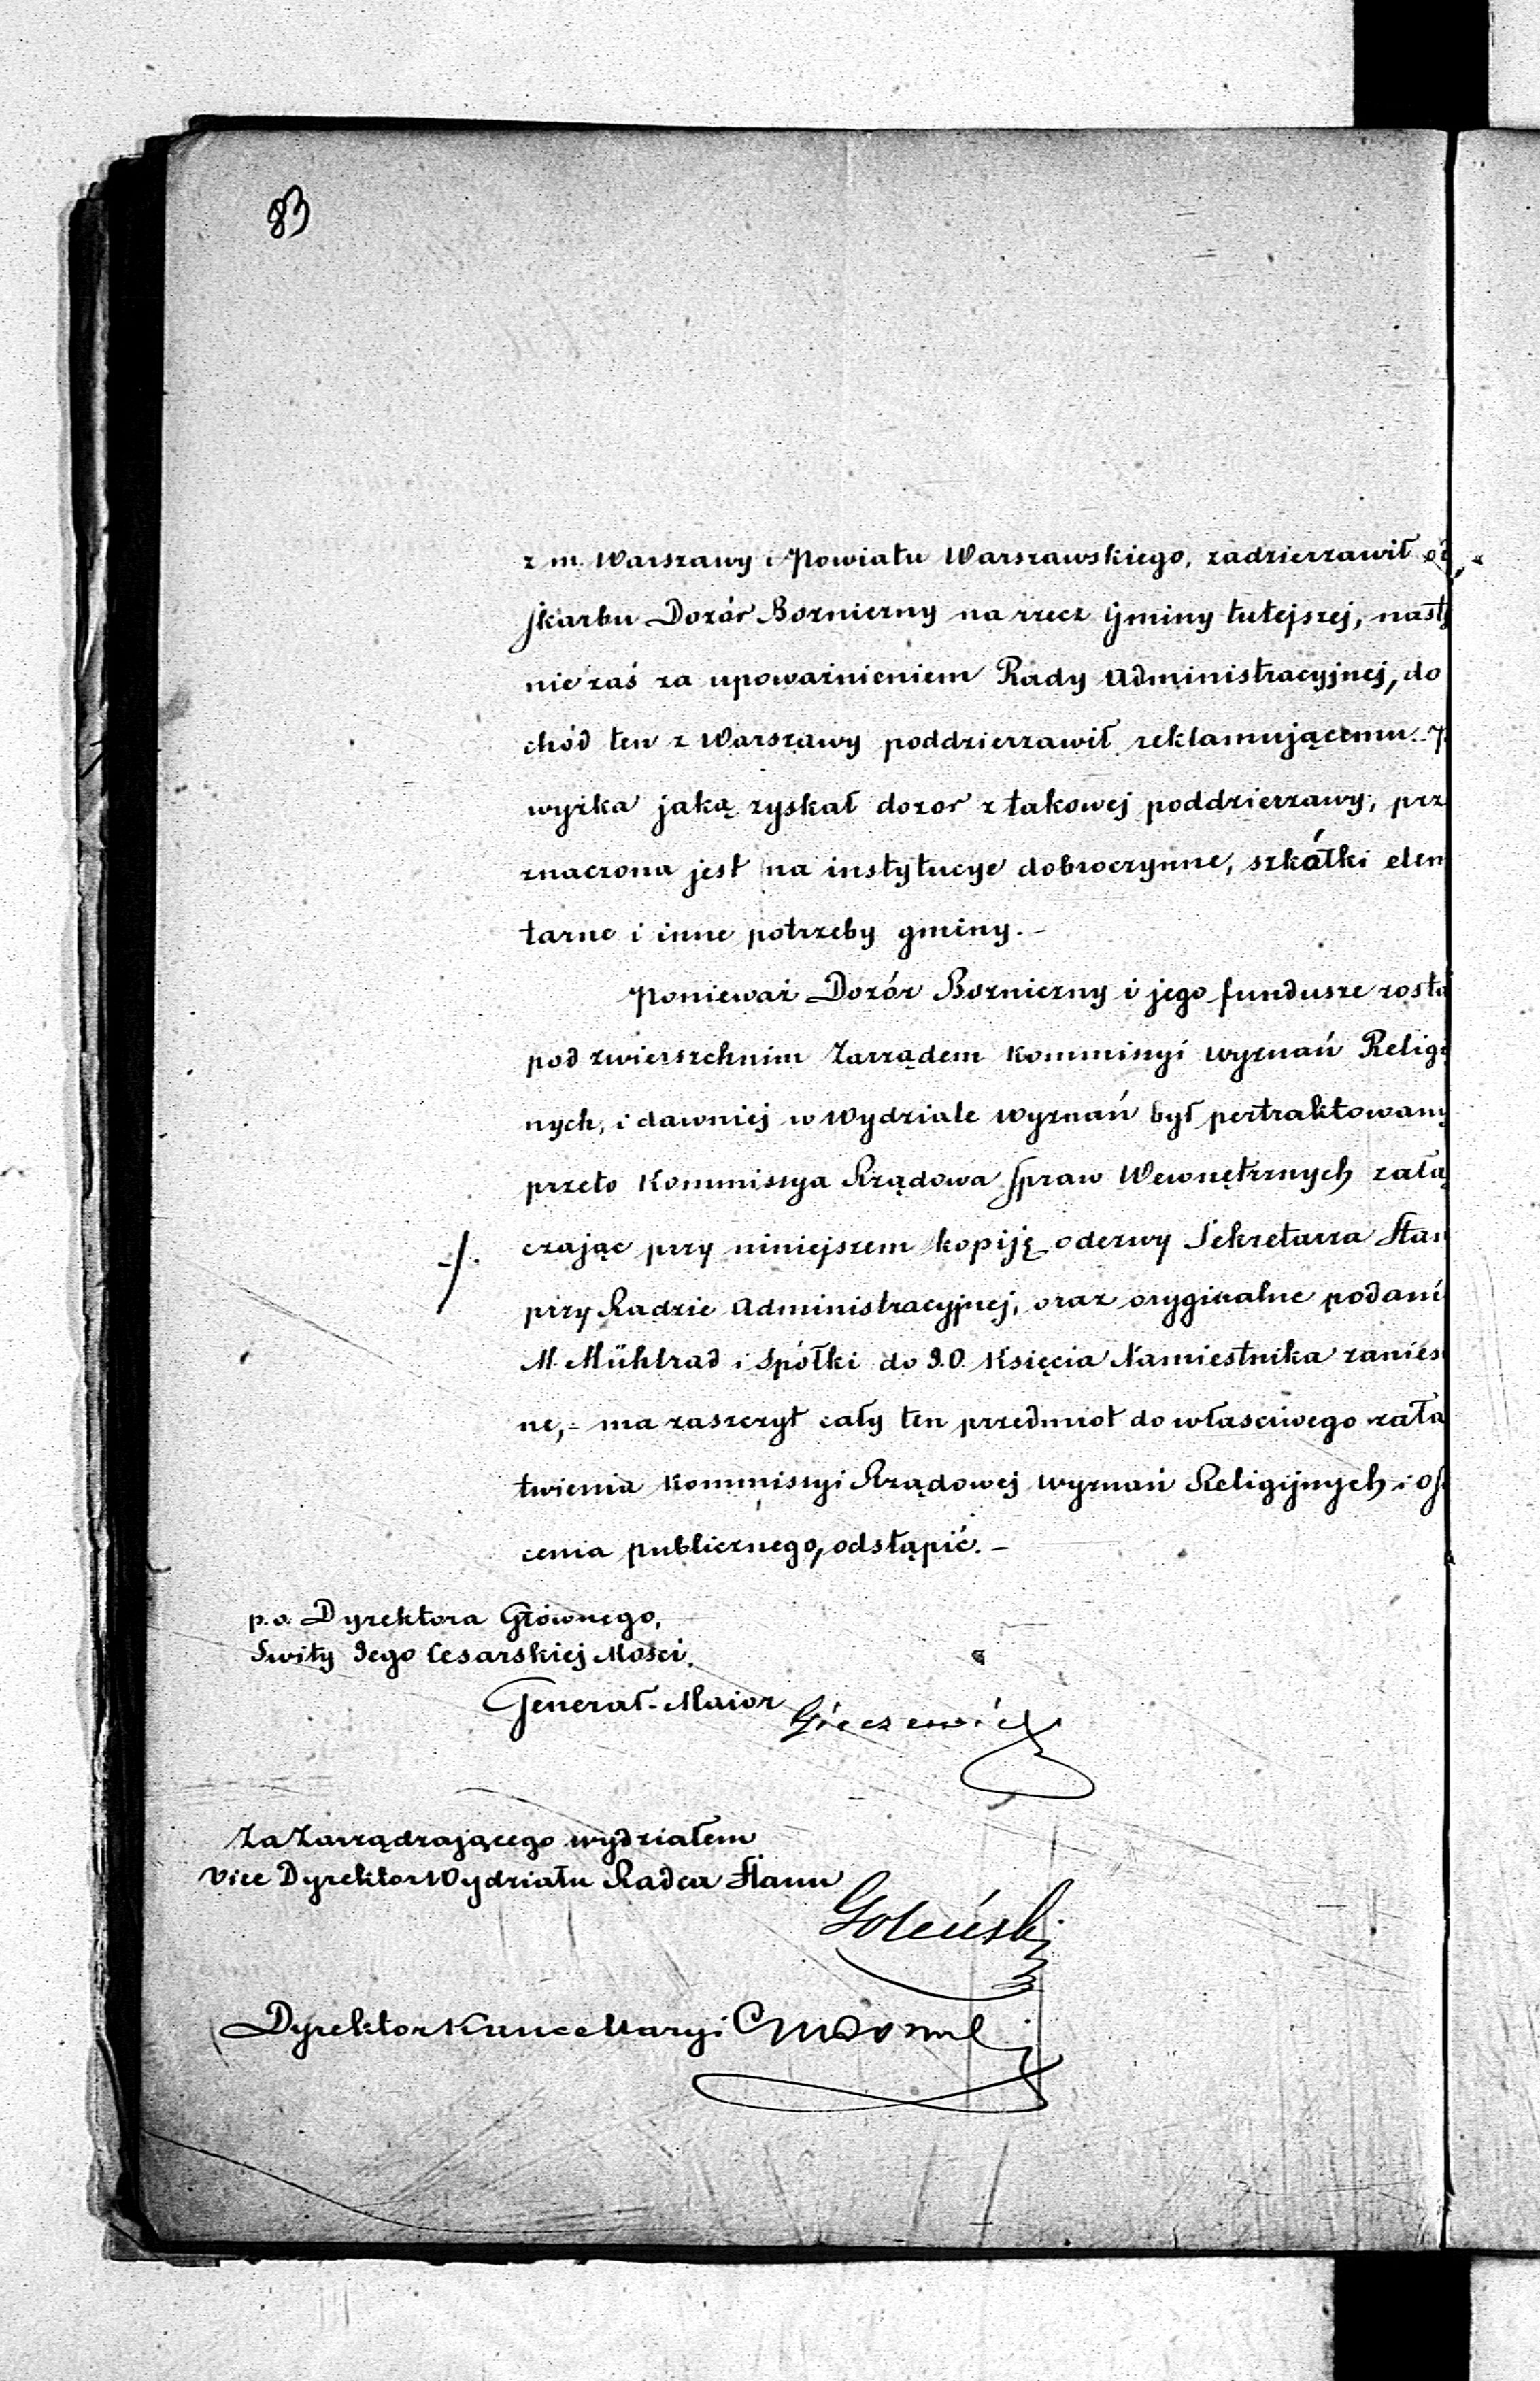 83
z m. Warszawy i Powiatu Warszawskiego, zadzierzawił od
Skarbu Dozór Bozniczny na rzecz Gminy tutejszej, nastę
nie zaś za upoważnieniem Rady Administracyjnej, do
chód ten z Warszawy poddzierzawił reklamującemu.
wyżka jaką zyskał dozor z takowej poddzierzawy, prz
znaczona jest na instytucye dobroczynne, szkółki elem
tarne i inne potrzeby gminy.-
Ponieważ Dozór Bozniczny i jego fundusze zosta
pod zwierzchnim Zarządem Kommissyi Wyznań Religi
nych, i dawniej w Wydziale Wyznań był pertraktowany
przeto Kommissya Rządowa Spraw Wewnętrznych załą
-/. czając przy niniejszem kopiję odezwy Sekretarza Stan
przy Radzie Administracyjnej, oraz oryginalne podani
M. Mühlrad i Spółki do J.O. Księcia Namiestnika zanies
ne,- ma zaszczyt cały ten przedmiot do właściwego zała
twienia Kommissyi Rządowej Wyznań Religijnych i Oś
cenia publicznego, odstąpić.-
p.o. Dyrektora Głównego,
Swity Jego Cesarskiej Mości,
Generał-Maior Gieczewicz
Za Zarządzającego wydziałem
Vice Dyrektor Wydziału Radca Stanu
Goleński
Dyrektor Kancellaryi